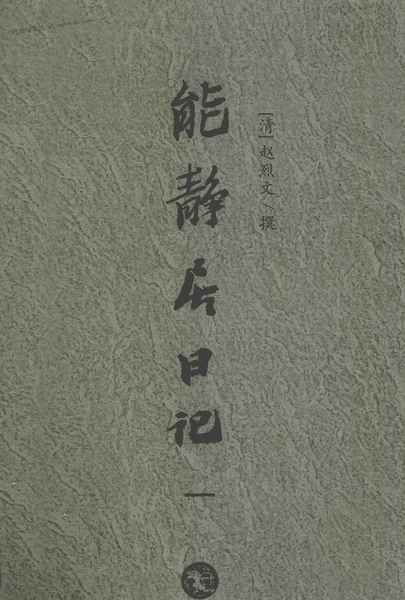 [清]赵烈文 撰
能静居日记
一